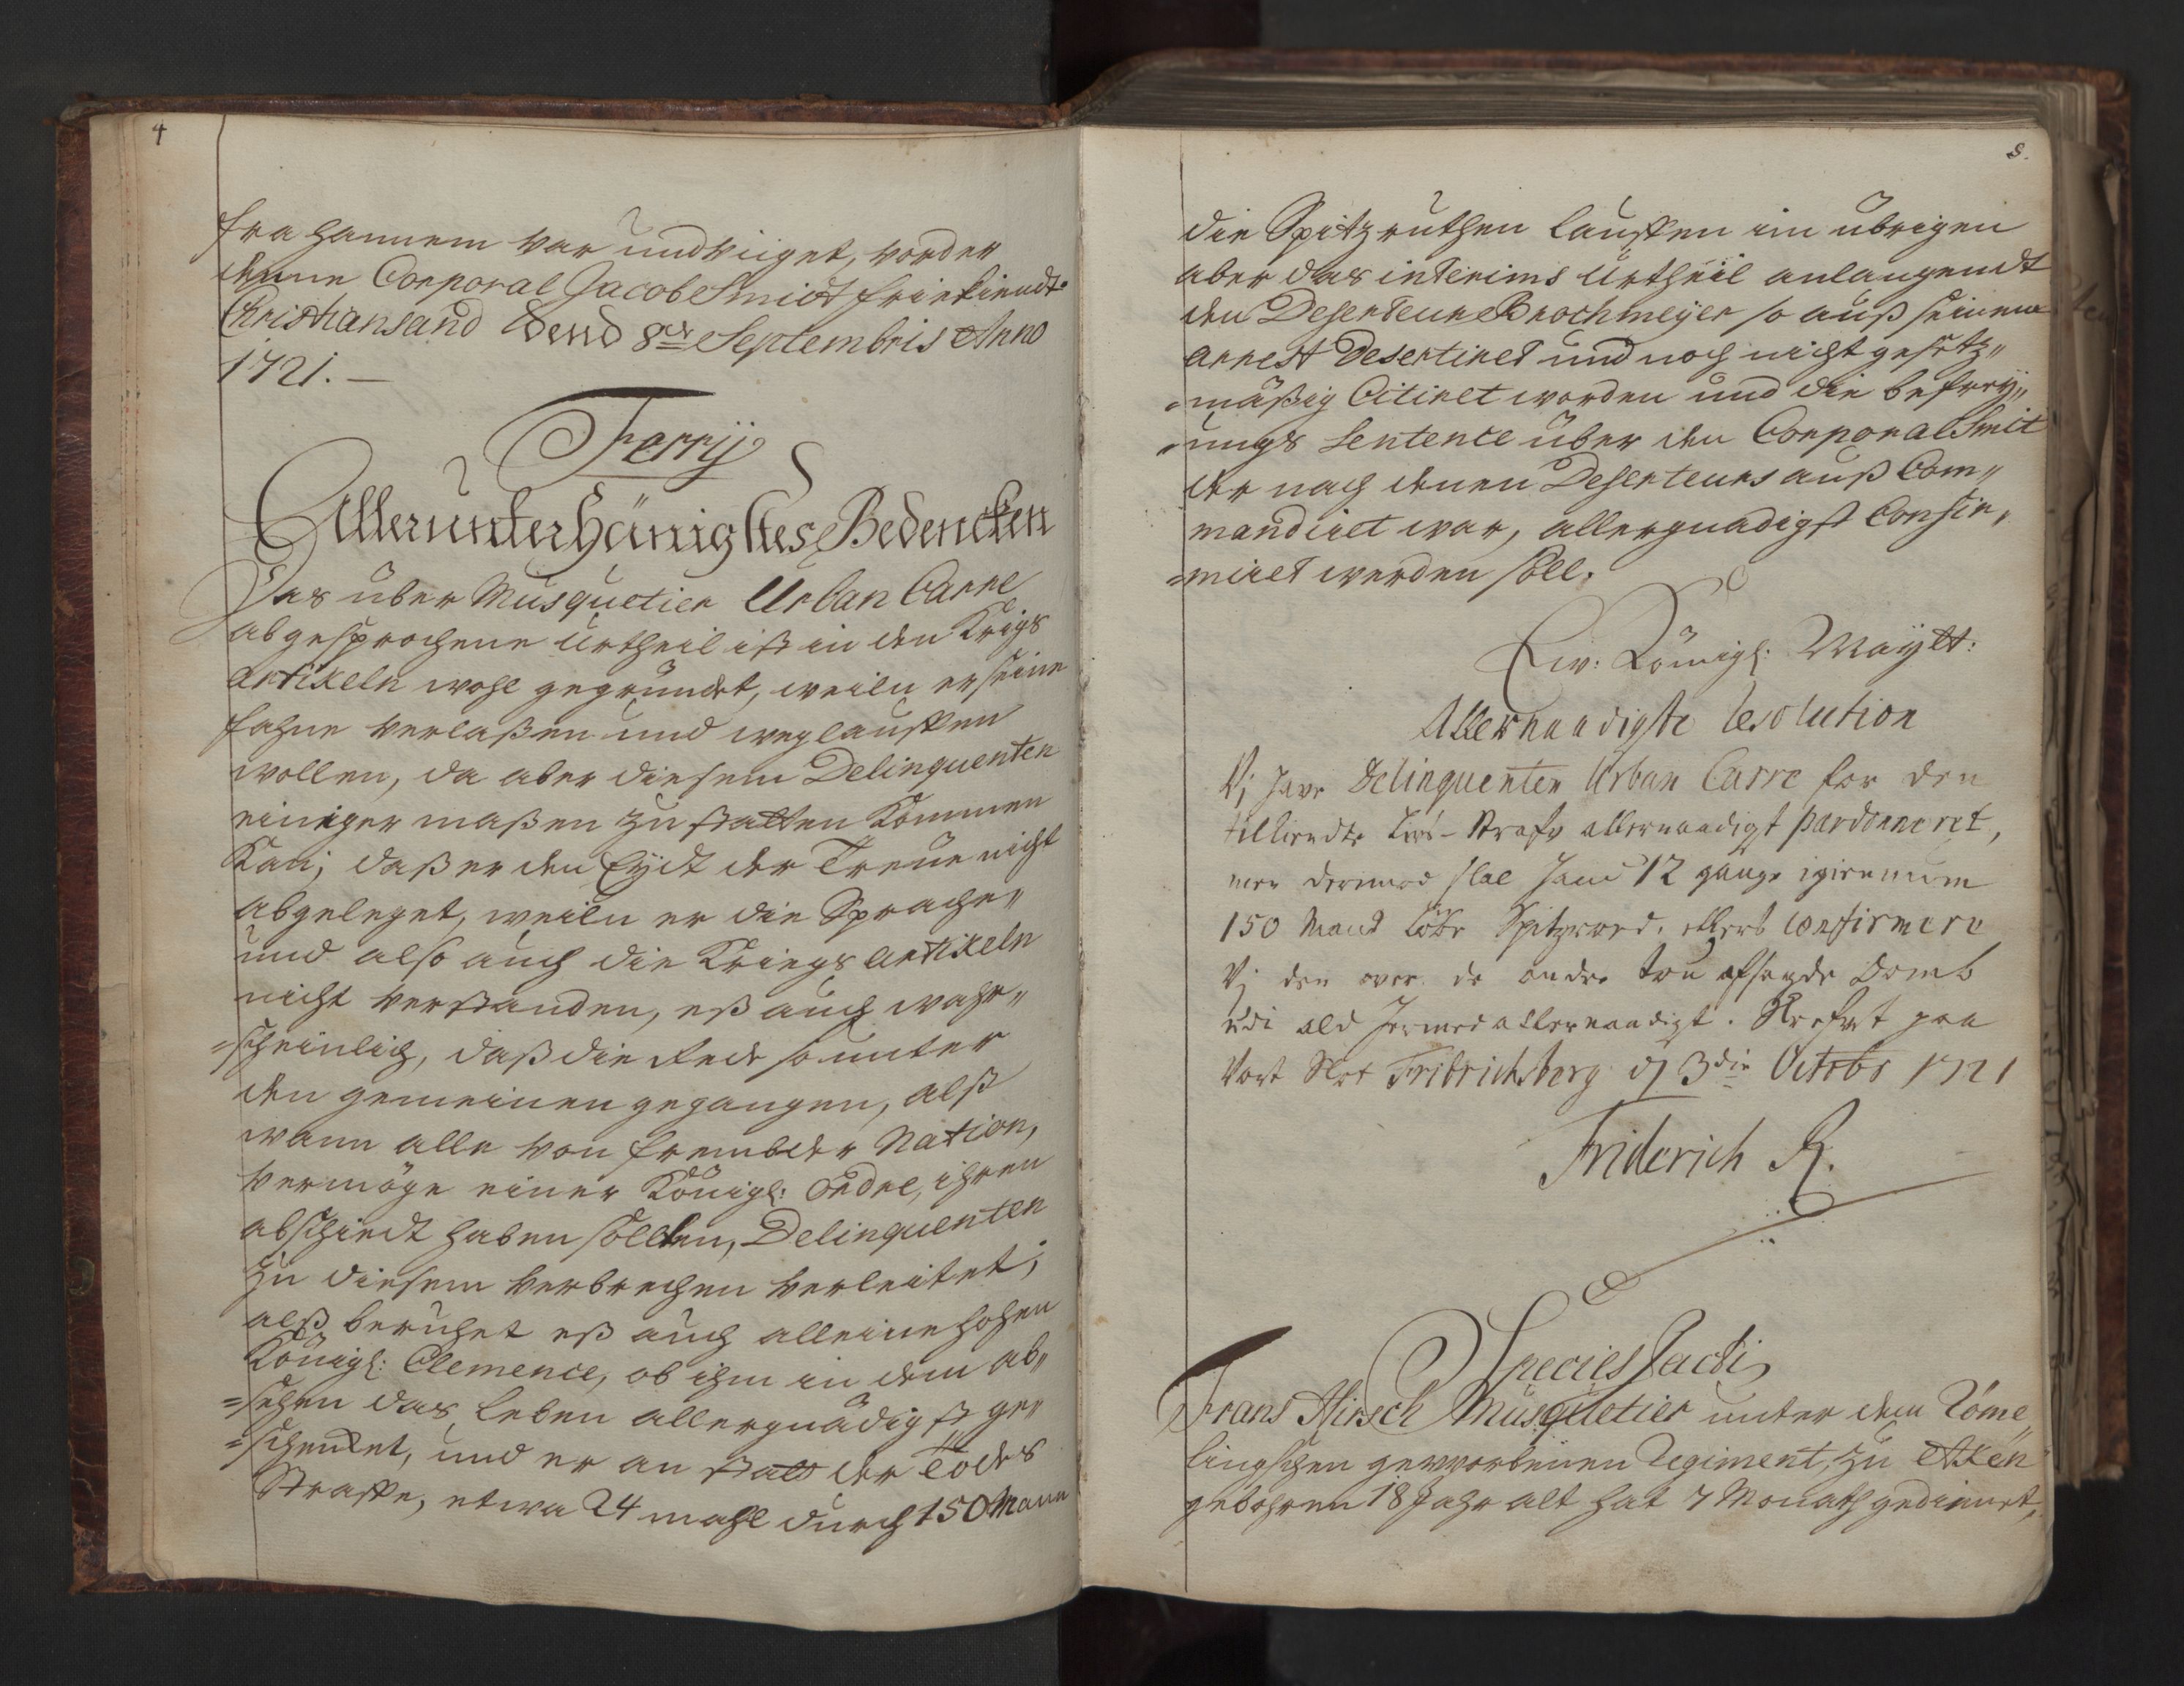 4
fra hannem var undviiget, vorder
denne Corporal Jacob Smidt friekiendt.
Christiansand dend 8de Septembris Anno
1721. —
Ferrÿ
Allerunterthänigstes Bedencken
Das über Musquetier Urban Carre
abgesprochene Urtheil ist in den Krigs
Artikeln wohl gegründet, weiln er seine
fahne verlaßen und weglauffen
wollen, da aber diesem Delinquenten
einiger maßen zu statten kommen
kan; daß er den Eÿdt der Treue nicht
abgeleget, weiln er die Sprache,
und also auch die Kriegs Artikeln
nicht verstanden, eß auch wahr„
=scheinlich, daß die Rede so unter
den gemeinen gegangen, alß
wann alle von frembder Nation,
vermöge einer Königl: Ordre, ihren
abschiedt haben sollten, Delinquenten
zu diesem verbrechen verleitet;
alß beruhet eß auch alleine hohen
Königl: Clemence, ob ihm in dem ab„
=sehen das leben allergnädigst ge„
=schenket, und er an statt der Todes
Straffe, etwa 24 mahl durch 150 Mann
5.
die Spitzruthen lauffen im übrigen
aber das interims Urtheil anlangendt
den Deserteur Brochmeÿer so auß seinem
arrest Desertiret und noch nicht gesetz„
=mäßig Citiret worden und die befreÿ„
=ungs Sentence über den Corporal Smit
der nach denen Deserteurs auß Com„
mandiret war, allergnädigst Confir„
=miret werden soll.
Ew: Königl: Maÿtt:
Allernaadigste Resolution
Vj have Delinquenten Urban Carre for den
tilkiendte Lifs-Straffe allernaadigst pardonneret,
men derimod skal hand 12 gange igiennem
150 Mand løbe Spitzrod. ellers confirmere
Vj den over de andre tou afsagde Domb
udi ald hermed allernaadigst. Skrefvet paa
Vort Slot Fridrichsberg dj 3die Octobr 1721
Friderich R.
Species Facti
Frans Hirsch Musquetier unter dem Röme„
lingschen geworbenen Regiment, zu Aken
gebohren 18 Jahr alt hat 7 Monath gedienet,